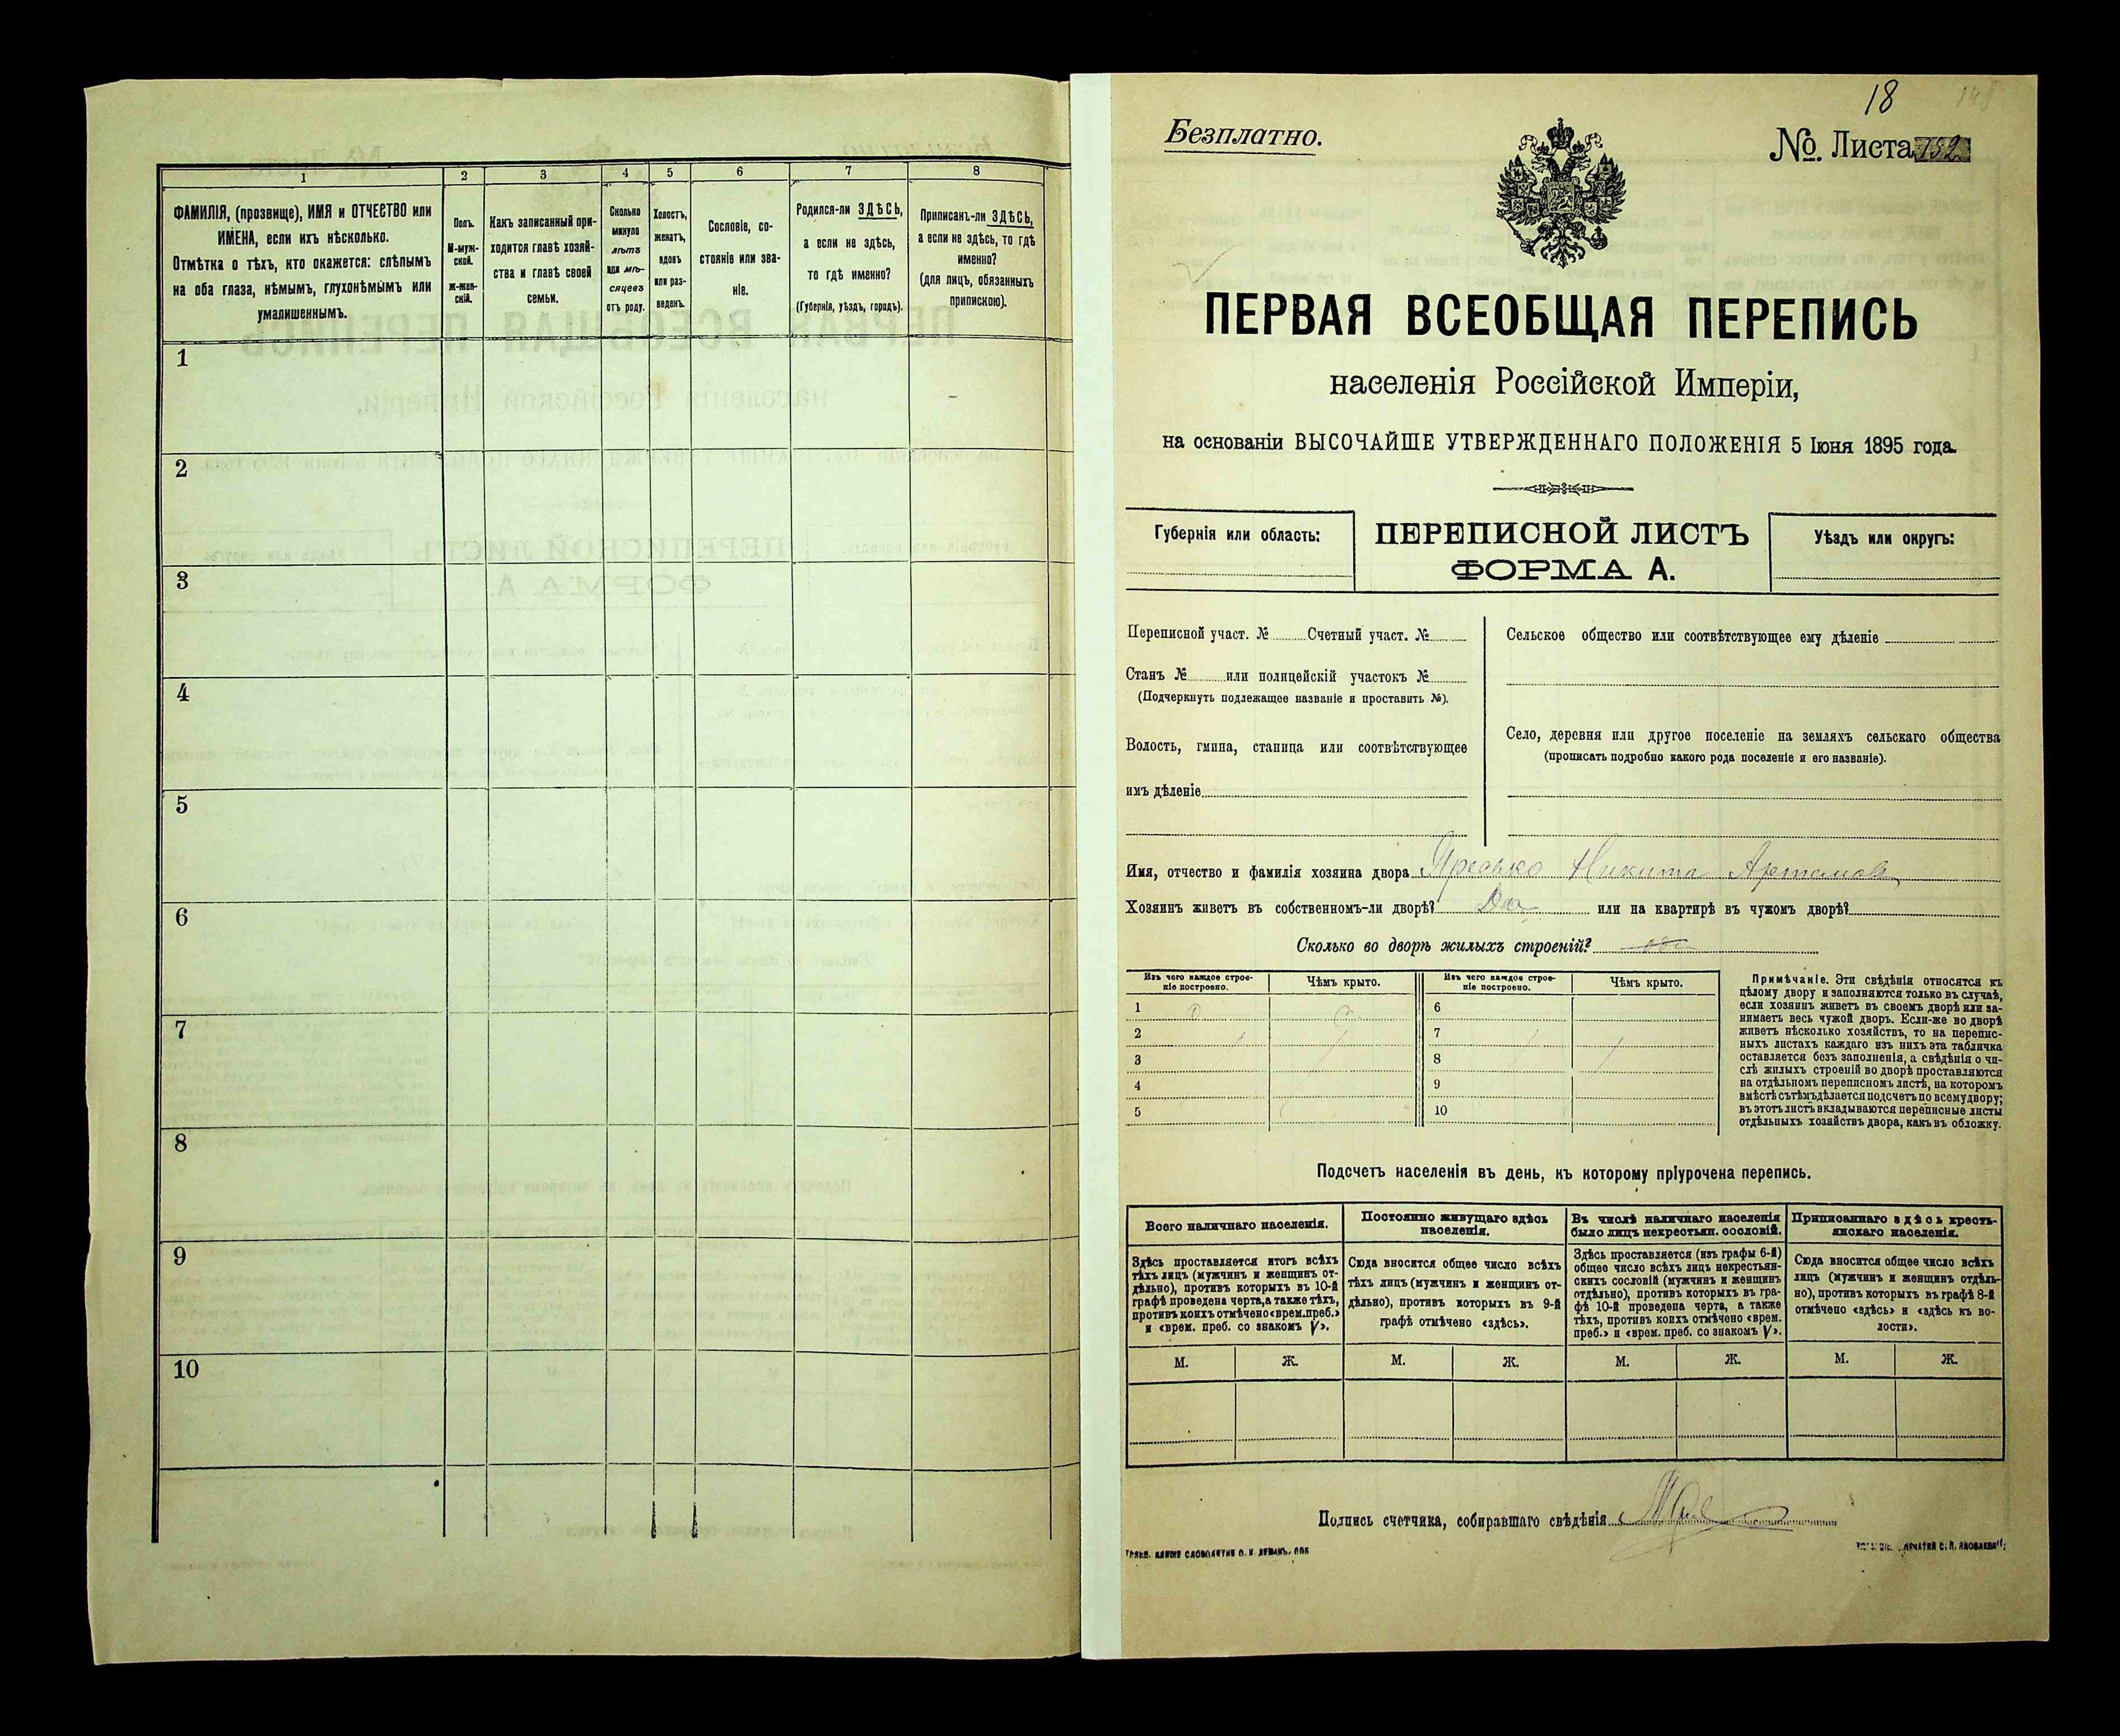 1
2
3
4
5
6
7
8
ФАМИЛІЯ, (прозвище), ИМЯ и ОТЧЕСТВО или
ИМЕНА, если ихъ нѣсколько.
Отмѣтка о тѣхъ, кто окажется: слѣпымъ
на оба глаза, нѣмымъ, глухонѣмымъ или
умалишеннымъ.
Полъ.
М-муж-
ской.
Ж-жен-
скій.
Какъ записанный при-
ходится главѣ хозяй-
ства и главѣ своей
семьи.
Сколько
минуло
лѣтъ
или мѣ-
сяцевъ
отъ роду.
Холостъ,
женатъ,
вдовъ
или раз-
веденъ.
Сословіе, со-
стояніе или зва-
ніе.
Родился-ли ЗДѢСЬ,
а если не здѣсь,
то гдѣ именно?
(Губернія, уѣздъ, городъ).
Приписанъ-ли ЗДѢСЬ,
а если не здѣсь, то гдѣ
именно?
(для лицъ, обязанныхъ
припискою).
1
2
3
4
5
6
7
8
9
10
18
Безплатно.
№. Листа 752
ПЕРВАЯ ВСЕОБЩАЯ ПЕРЕПИСЬ
населенія Россійской Имперіи,
на основаніи ВЫСОЧАЙШЕ УТВЕРЖДЕННАГО ПОЛОЖЕНІЯ 5 Іюня 1895 года.
Губернія или область:
ПЕРЕПИСНОЙ ЛИСТЪ
ФОРМА А.
Уѣздъ или округъ:
Переписной участ. № Счетный участ. №
Станъ № или полицейскій участокъ №
(Подчеркнуть подлежащее названіе и проставить №).
Волость, гмина, станица или соотвѣтствующее
имъ дѣленіе
Сельское общество или соотвѣтствующее ему дѣленіе
Село, деревня или другое поселеніе на земляхъ сельскаго общества
(прописать подробно какого рода поселеніе и его названіе).
Имя, отчество и фамилія хозяина двора Яресько Никита Артамов
Хозяинъ живетъ въ собственномъ-ли дворѣ? Да или на квартирѣ въ чужомъ дворѣ?
Сколько во дворѣ жилыхъ строеній?
Изъ чего каждое строе-
ніе построено.
Чѣмъ крыто.
Изъ чего каждое строе-
ніе построено.
Чѣмъ крыто.
1 6
2 7
3 8
4 9
5 10
Примѣчаніе. Эти свѣдѣнія относятся къ
цѣлому двору и заполняются только въ случаѣ,
если хозяинъ живетъ въ своемъ дворѣ или за-
нимаетъ весь чужой дворъ. Если-же во дворѣ
живетъ нѣсколько хозяйствъ, то на перепис-
ныхъ листахъ каждаго изъ нихъ эта табличка
оставляется безъ заполненія, а свѣдѣнія о чи-
слѣ жилыхъ строеній во дворѣ проставляются
на отдѣльномъ переписномъ листѣ, на которомъ
вмѣстѣ съ тѣмъ дѣлается подсчетъ по всему двору;
въ этотъ листъ вкладываются переписные листы
отдѣльныхъ хозяйствъ двора, какъ въ обложку.
Подсчетъ населенія въ день, къ которому пріурочена перепись.
Всего наличнаго населенія.
Постоянно живущаго здѣсь
населенія.
Въ числѣ наличнаго населенія
было лицъ некрестьян. сословій.
Приписаннаго здѣсь кресть-
янскаго населенія.
Здѣсь проставляется итогъ всѣхъ
тѣхъ лицъ (мужчинъ и женщинъ от-
дѣльно), противъ которыхъ въ 10-й
графѣ проведена черта, а также тѣхъ,
противъ коихъ отмѣчено «врем. преб.»
и «врем. преб. со знакомъ V».
Сюда вносится общее число всѣхъ
тѣхъ лицъ (мужчинъ и женщинъ от-
дѣльно), противъ которыхъ въ 9-й
графѣ отмѣчено «здѣсь».
Здѣсь проставляется (изъ графы 6-й)
общее число всѣхъ лицъ некрестьян-
скихъ сословій (мужчинъ и женщинъ
отдѣльно), противъ которыхъ въ гра-
фѣ 10-й проведена черта, а также
тѣхъ, противъ коихъ отмѣчено «врем.
преб.» и «врем. преб. со знакомъ V».
Сюда вносится общее число всѣхъ
лицъ (мужчинъ и женщинъ отдѣль-
но), противъ которыхъ въ графѣ 8-й
отмѣчено «здѣсь» и «здѣсь къ во-
лости».
М. Ж. М. Ж. М. Ж. М. Ж.
Подпись счетчика, собиравшаго свѣдѣнія